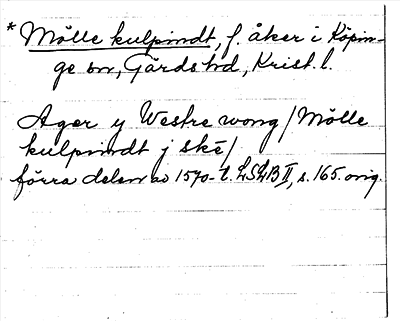 * Mölle kulpindt, f. åker i Köpin-
ge sn, Gärds hd, Krist. l.
Ager y Westre wong / Mölle
kulpindt j skē /
förra delen av 1570-t. LSLB II, s. 165. orig.